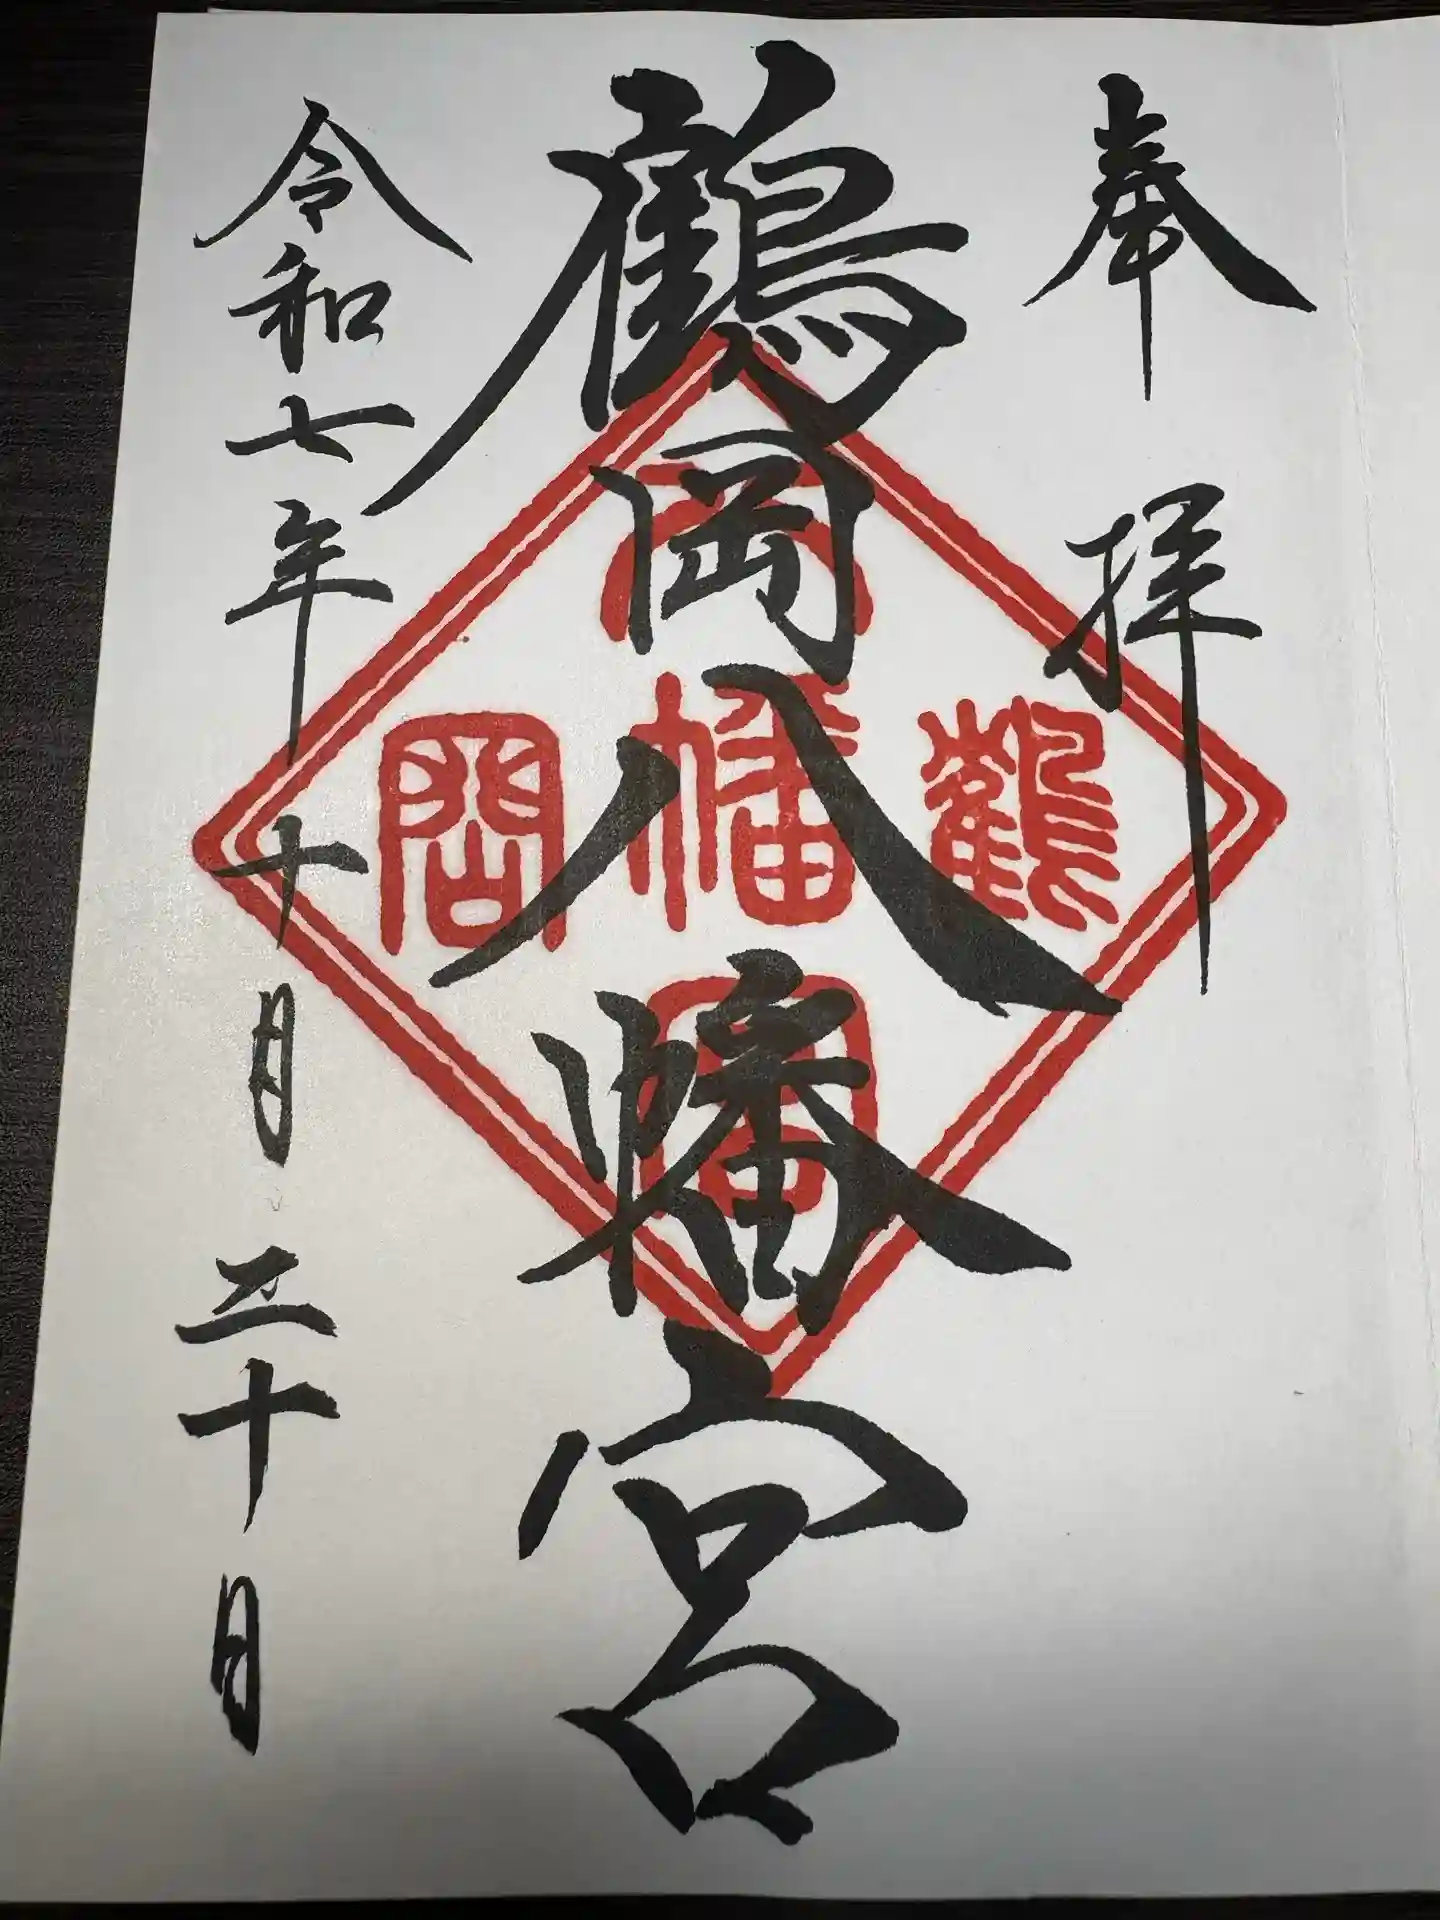 奉拝
鶴岡八幡宮
令和七年十月三十日
鶴岡八幡宮